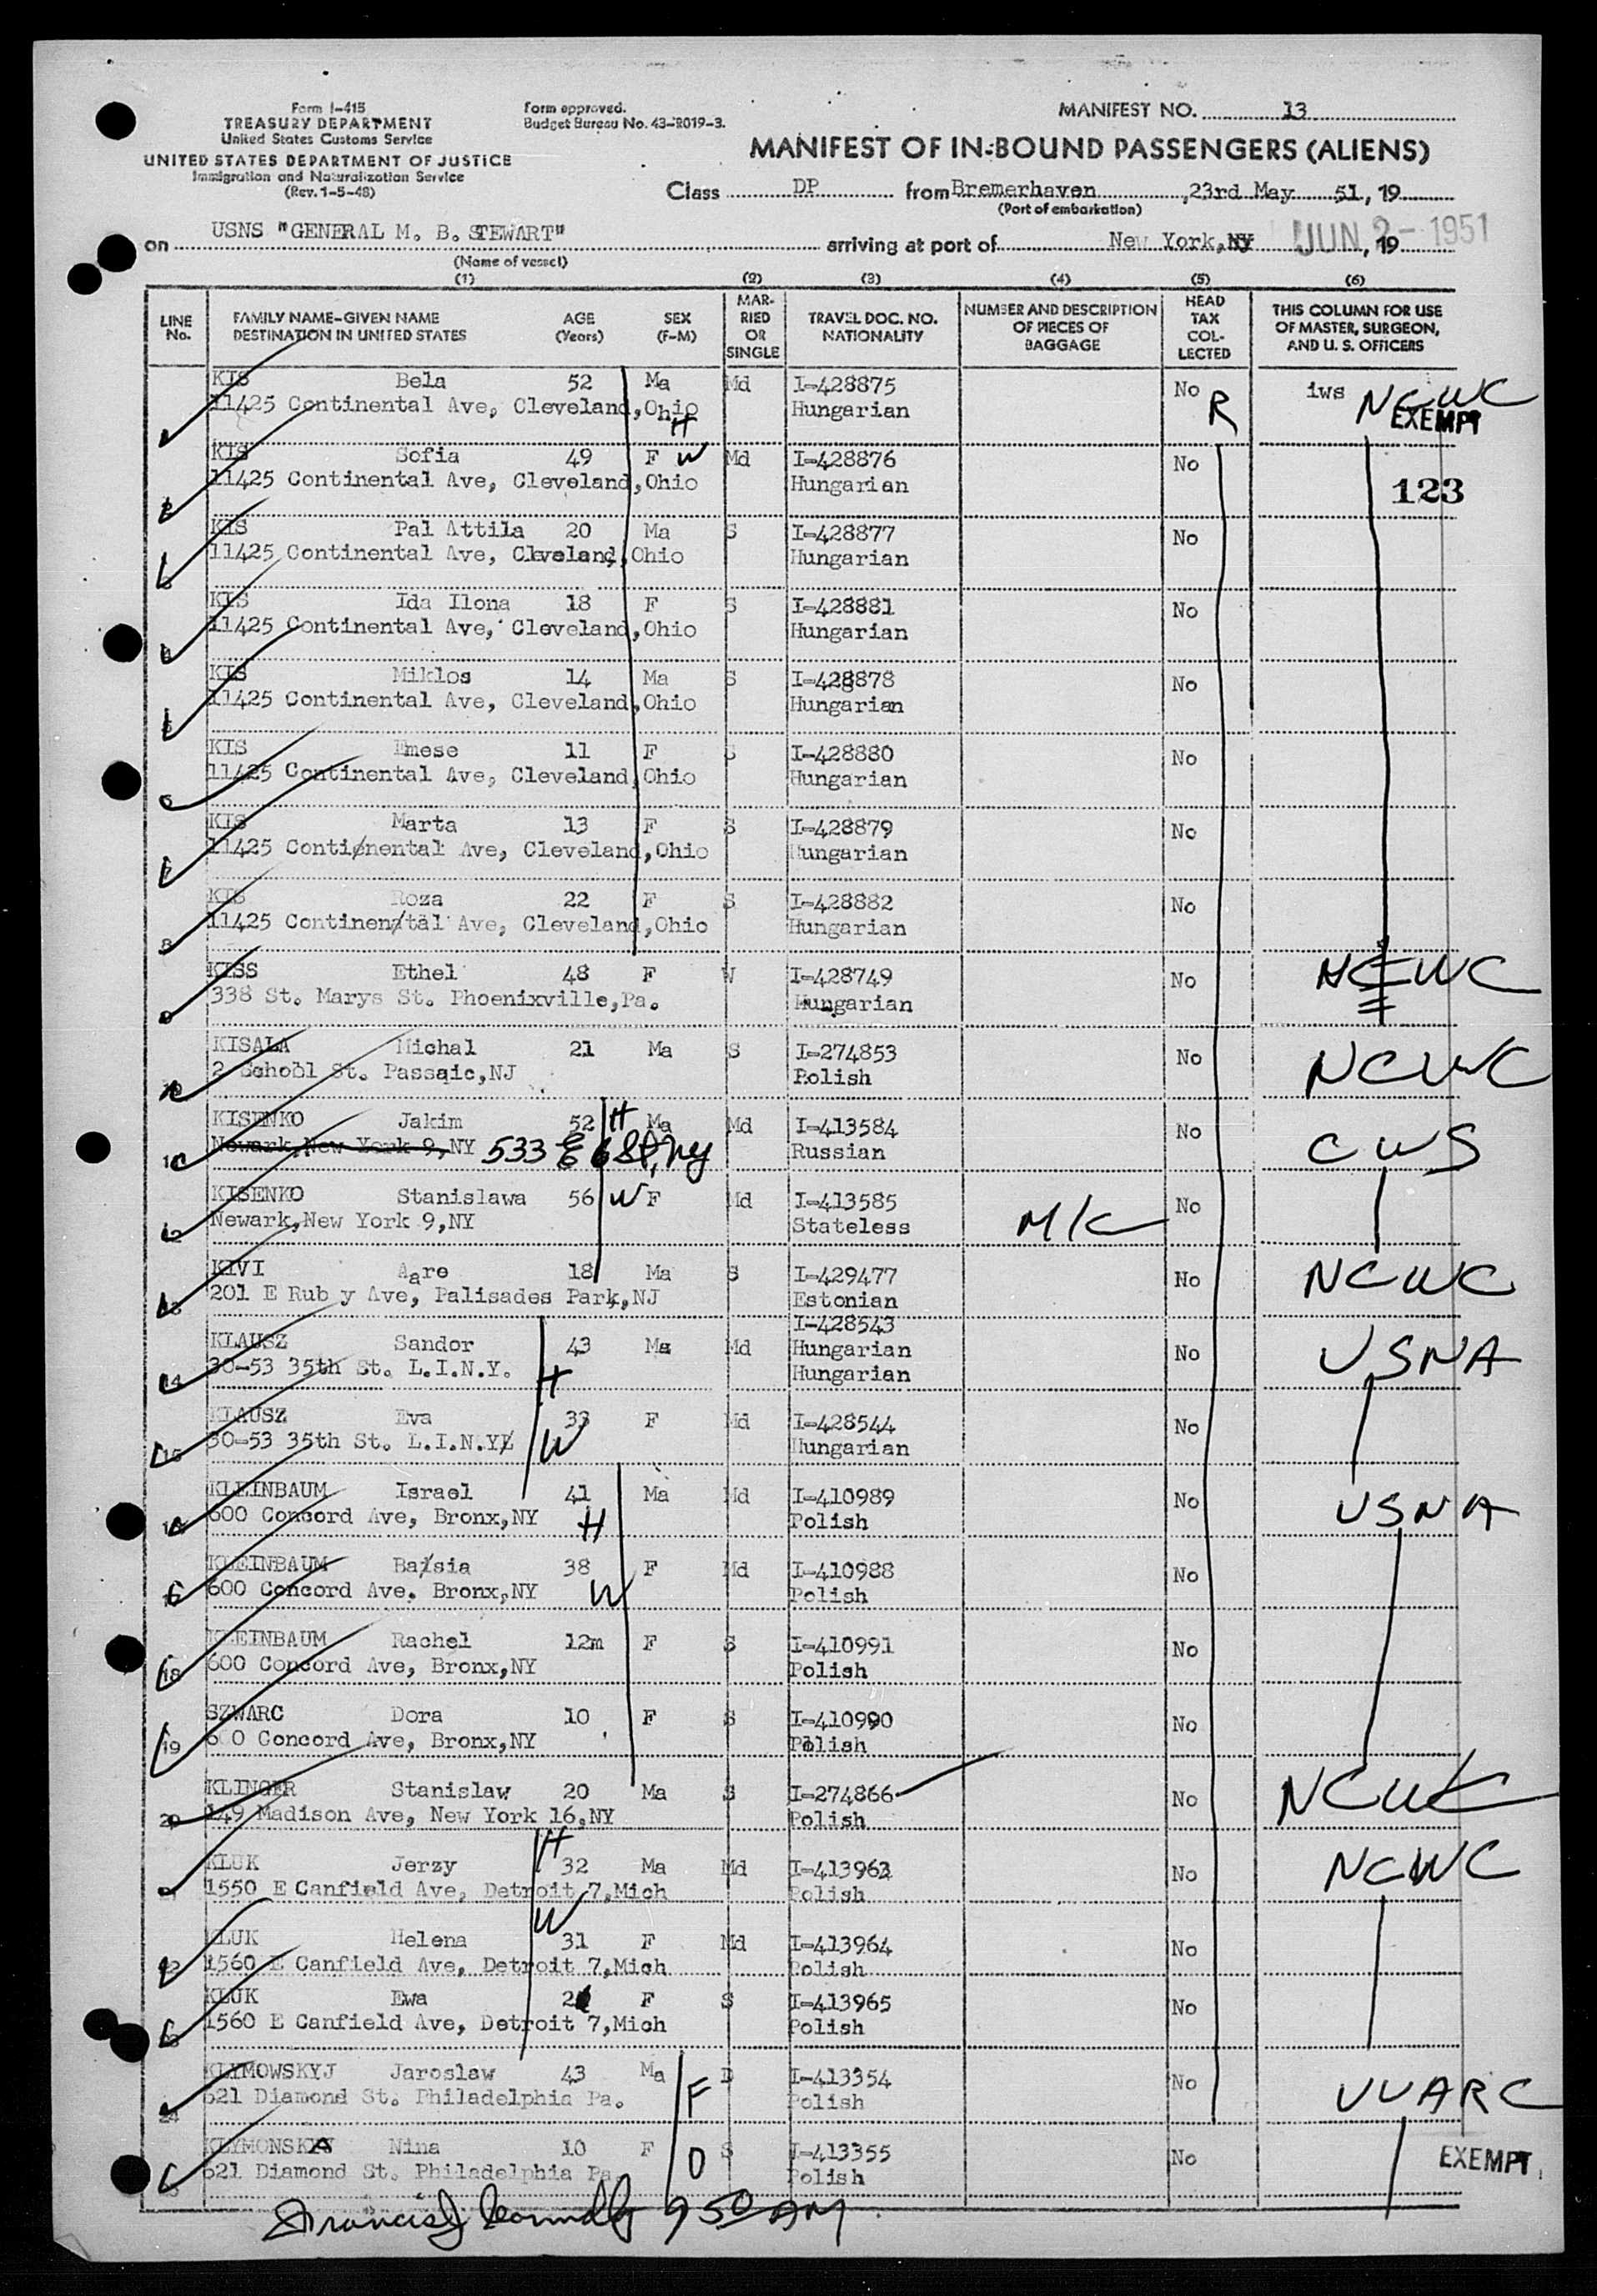 Form I-415
TREASURY DEPARTMENT
United States Customs Service
UNITED STATES DEPARTMENT OF JUSTICE
Immigration and Naturalization Service
(Rev. 1-5-48)
Form approved.
Budget Bureau No. 43-R019-3.
MANIFEST NO. 13
MANIFEST OF IN-BOUND PASSENGERS (ALIENS)
Class DP from Bremerhaven, 23rd May 51, 19
(Port of embarkation)
on USNS "GENERAL M. B. STEWART" arriving at port of New York, NY JUN 2 - 1951, 19
(Name of vessel)
(1) (2) (3) (4) (5) (6)
LINE No. FAMILY NAME-GIVEN NAME DESTINATION IN UNITED STATES AGE (Years) SEX (F-M) MARRIED OR SINGLE TRAVEL DOC. NO. NATIONALITY NUMBER AND DESCRIPTION OF PIECES OF BAGGAGE HEAD TAX COLLECTED THIS COLUMN FOR USE OF MASTER, SURGEON, AND U. S. OFFICERS
KIS Bela 52 Ma Md I-428875 No R iws NCWC
11425 Continental Ave, Cleveland, Ohio H Hungarian EXEMPT
2 KIS Sofia 49 F W Md I-428876 No
11425 Continental Ave, Cleveland, Ohio Hungarian 123
3 KIS Pal Attila 20 Ma S I-428877 No
11425 Continental Ave, Cleveland, Ohio Hungarian
4 KIS Ida Ilona 18 F S I-428881 No
11425 Continental Ave, Cleveland, Ohio Hungarian
5 KIS Miklos 14 Ma S I-428878 No
11425 Continental Ave, Cleveland, Ohio Hungarian
6 KIS Emese 11 F S I-428880 No
11425 Continental Ave, Cleveland, Ohio Hungarian
7 KIS Marta 13 F S I-428879 No
11425 Continental Ave, Cleveland, Ohio Hungarian
8 KIS Roza 22 F S I-428882 No
11425 Continental Ave, Cleveland, Ohio Hungarian
9 KISS Ethel 48 F W I-428749 No NCWC
338 St. Marys St. Phoenixville, Pa. Hungarian
10 KISALA Michal 21 Ma S I-274853 No NCWC
2 School St. Passaic, NJ Polish
11 KISENKO Jakim 52 H Ma Md I-413584 No CWS
Newark, New York 9, NY 533 E 6 St, Ny Russian
12 KISENKO Stanislawa 56 W F Md I-413585 No
Newark, New York 9, NY Stateless M/C
13 KIVI Aare 18 Ma S I-429477 No NCWC
201 E Rub y Ave, Palisades Park, NJ Estonian
14 KLAUSZ Sandor 43 Ma Md I-428543 Hungarian No USNA
30-53 35th St. L.I.N.Y. H Hungarian
15 KLAUSZ Eva 33 F Md I-428544 No
30-53 35th St. L.I.N.Y. W Hungarian
16 KLEINBAUM Israel 41 Ma Md I-410989 No USNA
600 Concord Ave, Bronx, NY H Polish
17 KLEINBAUM Basia 38 F Md I-410988 No
600 Concord Ave. Bronx, NY W Polish
18 KLEINBAUM Rachel 12m F S I-410991 No
600 Concord Ave, Bronx, NY Polish
19 SZWARC Dora 10 F S I-410990 No
600 Concord Ave, Bronx, NY Polish
20 KLINGER Stanislaw 20 Ma S I-274866 No NCWC
149 Madison Ave, New York 16, NY Polish
21 KLUK Jerzy H 32 Ma Md I-413963 No NCWC
1550 E Canfield Ave, Detroit 7, Mich Polish
22 KLUK Helena W 31 F Md I-413964 No
1560 E Canfield Ave, Detroit 7, Mich Polish
23 KLUK Ewa F S I-413965 No
1560 E Canfield Ave, Detroit 7, Mich Polish
24 KLYMOWSKYJ Jaroslaw 43 Ma D I-413354 No UUARC
621 Diamond St. Philadelphia Pa. F Polish
25 Nina 10 F S I-413355 No EXEMPT
621 Diamond St. Philadelphia Pa. D Polish
Francis J 9 50 AM